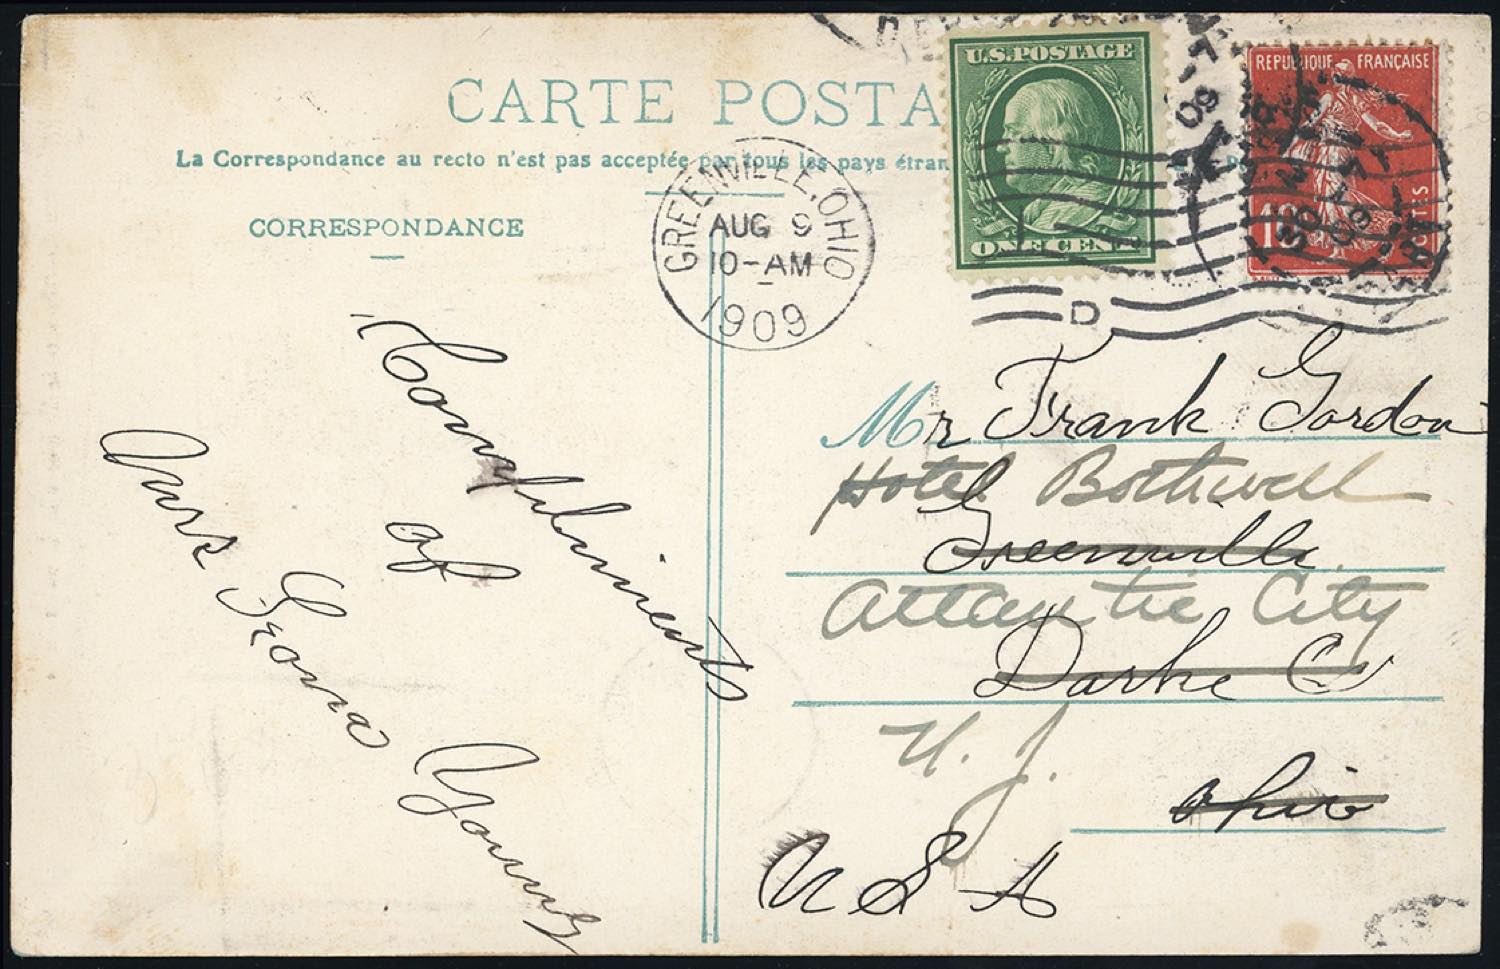 CARTE POSTA
La Correspondance au recto n'est pas acceptée par tous les pays étran
CORRESPONDANCE
U.S. POSTAGE
ONE CENT
REPUBLIQUE FRANÇAISE
10
GREENVILLE, OHIO
AUG 9
10-AM
1909
D
Compliments
of
Young
Mr Frank Gordon
Hotel Bothwell
Greenville
Atlantic City
Darke Co
N. J.
Ohio
U S A